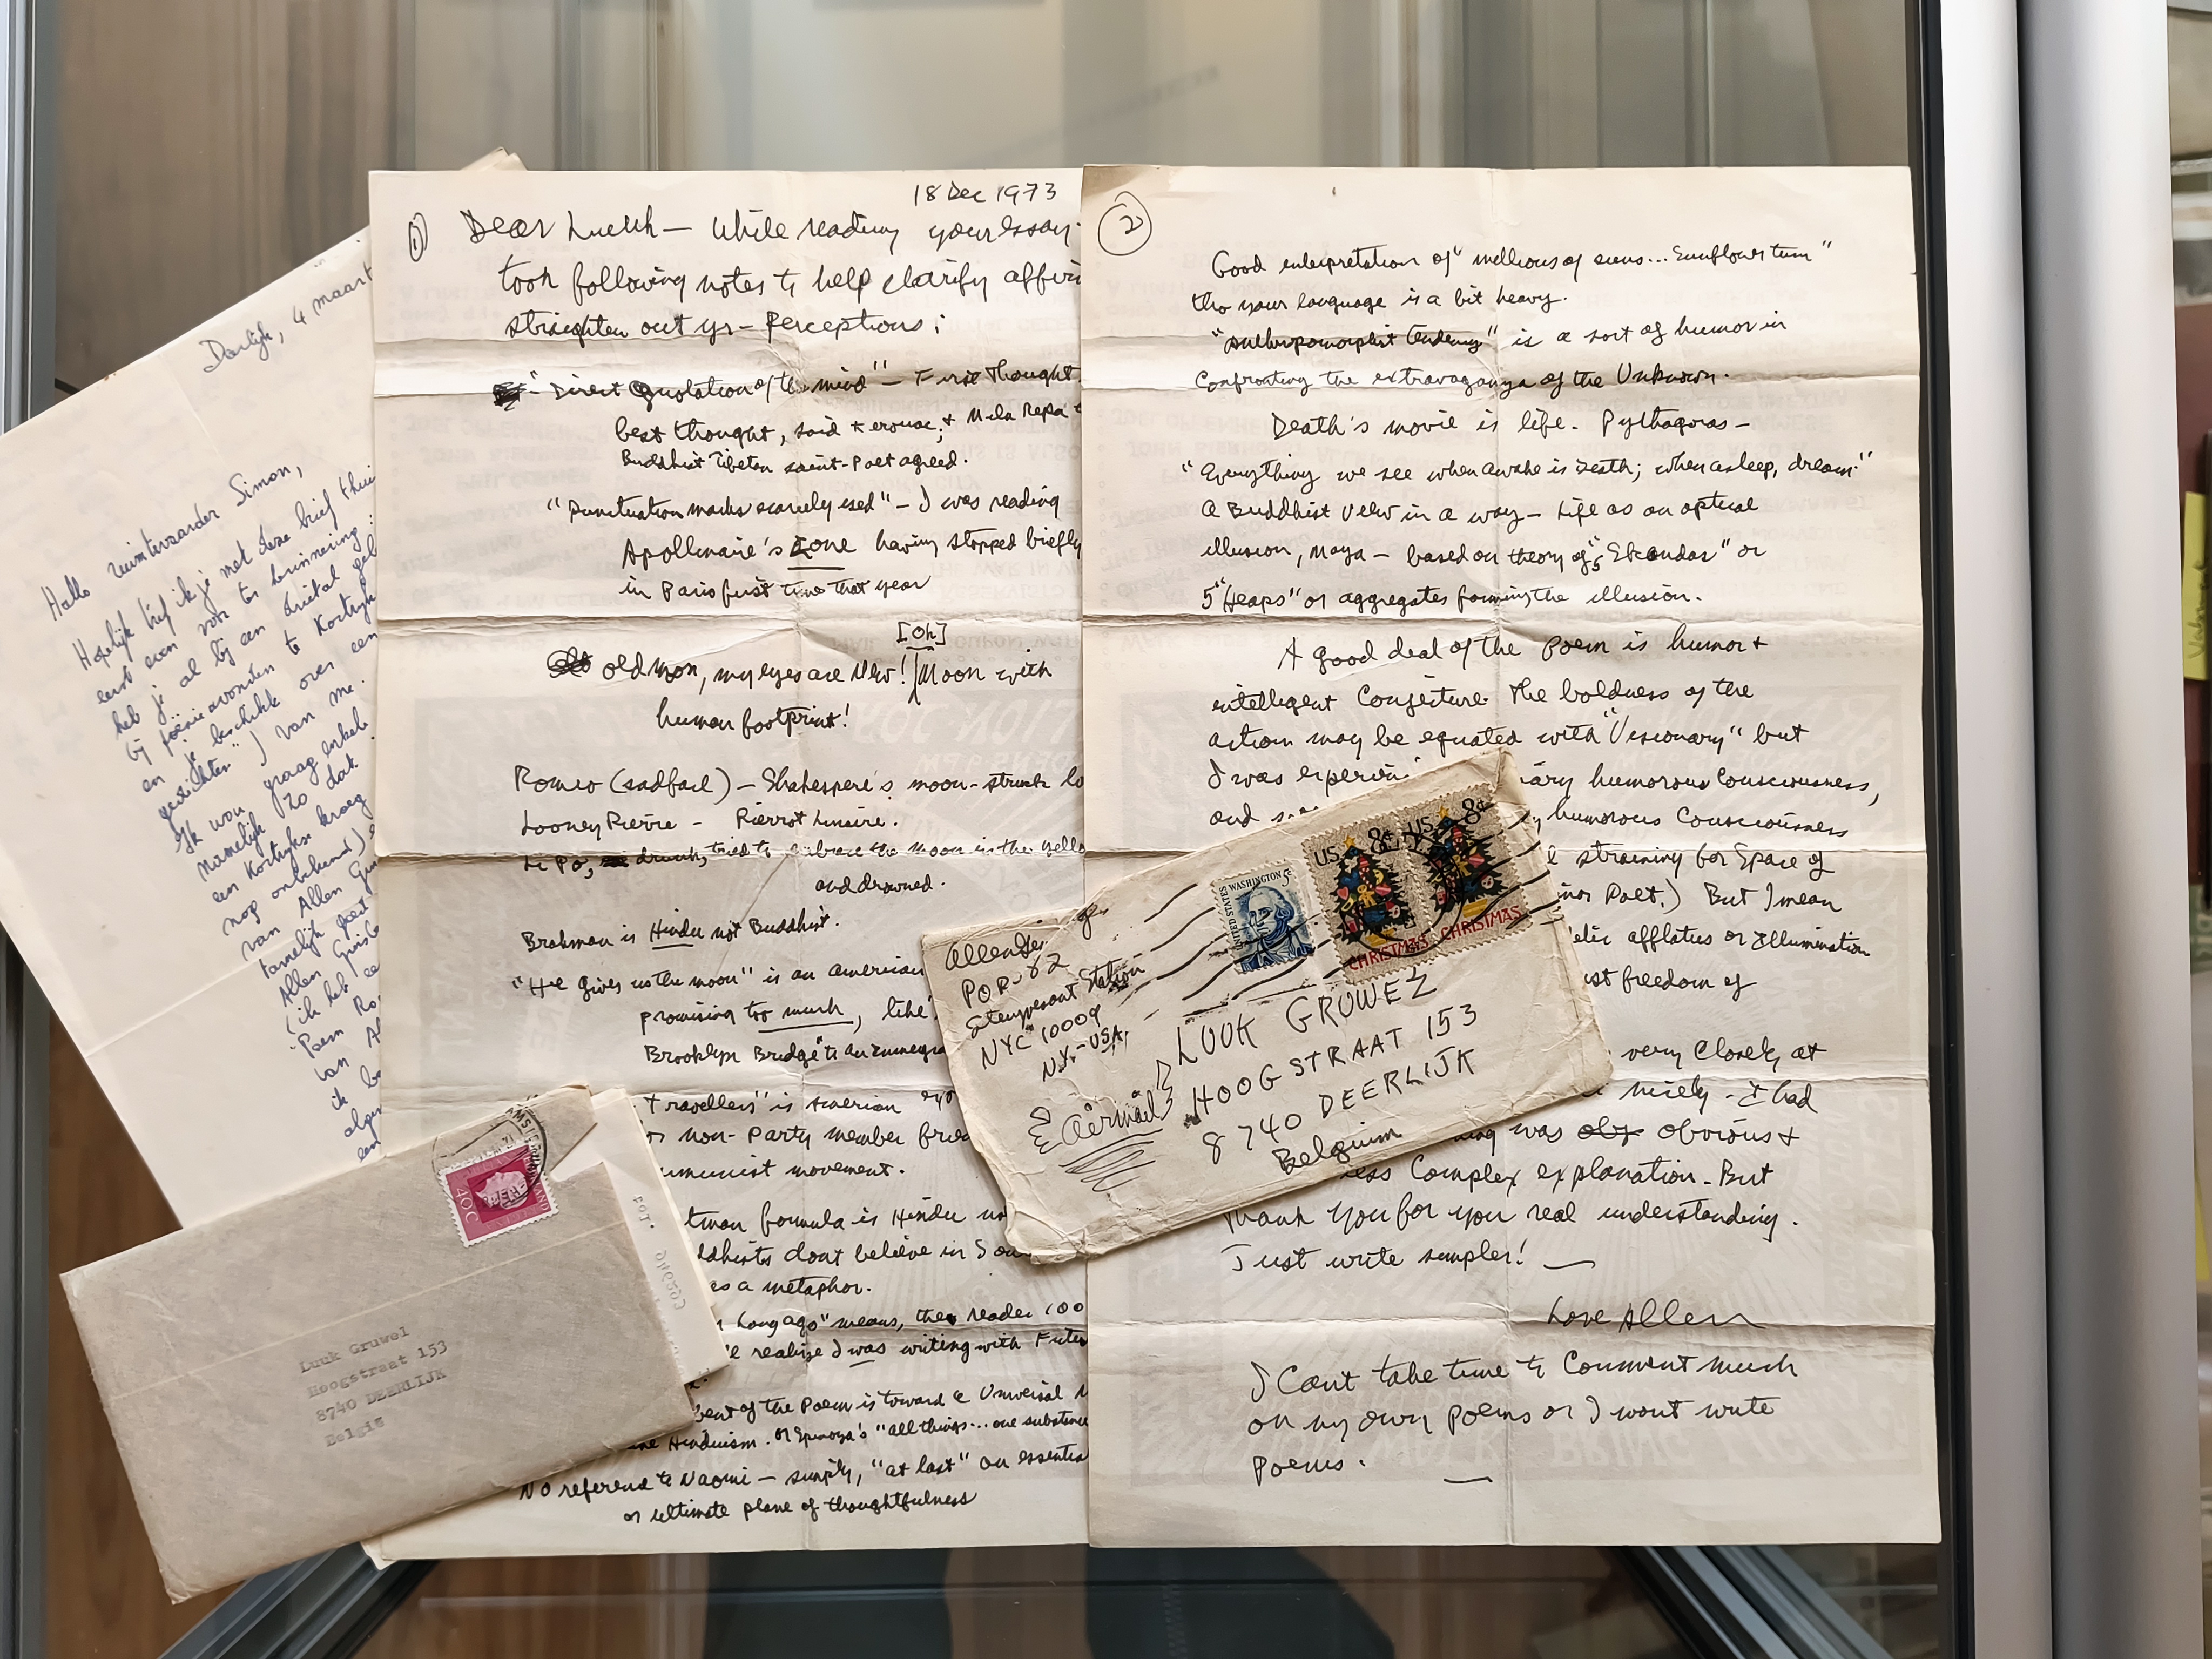 Deerlijk, 4 maart
Hallo ruimtevaarder Simon,
Hopelijk tref ik je met deze brief thuis
eerst even voor ter herinnering:
heb je al bij een drietal
bij poëzieavonden te Kortrijk
en je beschikt over een
gedichten") van me.
Ik wou graag enkele
Namelijk zo dat
een Kortrijkse kroeg
nog onbekend)
van Allen
tamelijk goed
Allen
(ik heb ee
Poem Ro
van A
ik
alge
een
AMSTERDAM
NEDERLAND
40c
Luuk Gruwel
Hoogstraat 153
8740 DEERLIJK
België
①
18 Dec 1973
Dear Luukh — While reading your essay
took following notes to help clarify
straighten out yr — Perceptions:
- "Direct Quotation of the mind" — First thought
best thought, said Kerouac; & Mila Repa
Buddhist Tibetan saint-Poet agreed.
"Punctuation marks scarcely used" — I was reading
Apollinaire's Zone having stopped briefly
in Paris first time that year
[Oh]
old moon, my eyes are New! Moon with
human footprint!
Romeo (sadfaced) — Shakespere's moon-struck lo
Looney Pierre - Pierrot Lunaire.
Li Po, drunk, tried to embrace the moon in the yello
and drowned.
Brahman is Hindu not Buddhist.
"He gives us the moon" is an American
promising too much, like
Brooklyn Bridge" to an immigra
travellers" is
non-Party member
mmunist movement.
tman formula is Hindu no
ddhists dont believe in Sou
as a metaphor.
Long ago" means, the reader 100
realize I was writing with Futur
bent of the Poem is toward a Universal
Hinduism. Or Spinoza's "all things... one substance
No reference to Naomi — simply, "at last" on essential
or ultimate plane of thoughtfulness
②
Good interpretation of "millions of suns... Sunflower turn"
tho your language is a bit heavy.
"Anthropomorphist tendency" is a sort of humor in
Confronting the extravaganza of the Unknown.
Death's movie is life. Pythagoras —
"Everything we see when awake is Death; when asleep, dream"
A Buddhist View in a way — Life as an optical
illusion, Maya — based on theory of "5 Skandas" or
5 "Heaps" or aggregates forming the illusion.
A good deal of the Poem is humor &
intelligent Conjecture. The boldness of the
action may be equated with "Visionary" but
I was experien ary humorous Consciousness,
and humorous Consciousness
straining for Space of
nor Poet.) But I mean
delic afflatus or Illumination
ust freedom of
very Closely at
nicely. I had
was obvious &
less Complex explanation. But
Thank You for you real understanding.
Just write simpler! —
Love Allen
I Cant take time to Comment much
on my own poems or I wont write
poems. —
Allen
POB 582
Stuyvesant Station
NYC 10009
N.Y. - USA
Airmail
UNITED STATES
WASHINGTON 5c
US 8c
CHRISTMAS
US 8c
CHRISTMAS
LUUK GRUWEZ
HOOGSTRAAT 153
8740 DEERLIJK
Belgium